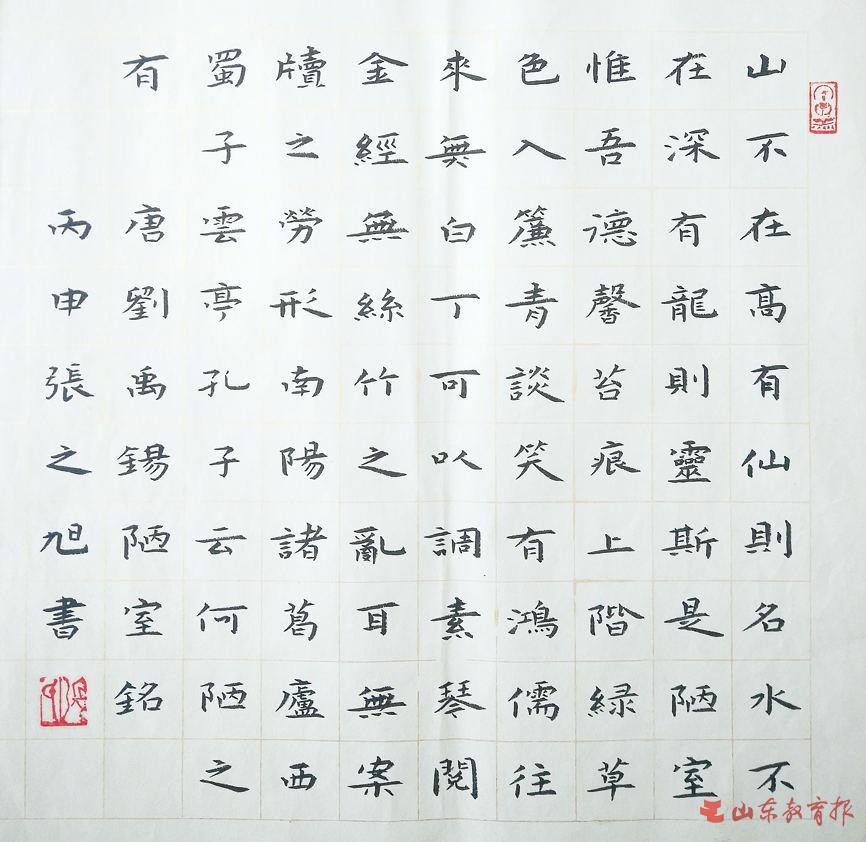 山不在高有仙則名水不
在深有龍則靈斯是陋室
惟吾德馨苔痕上階緑草
色入簾青談笑有鴻儒往
來無白丁可以調素琴閱
金經無絲竹之亂耳無案
牘之勞形南陽諸葛廬西
蜀子雲亭孔子云何陋之
有 唐劉禹錫陋室銘
丙申張之旭書
山东教育报